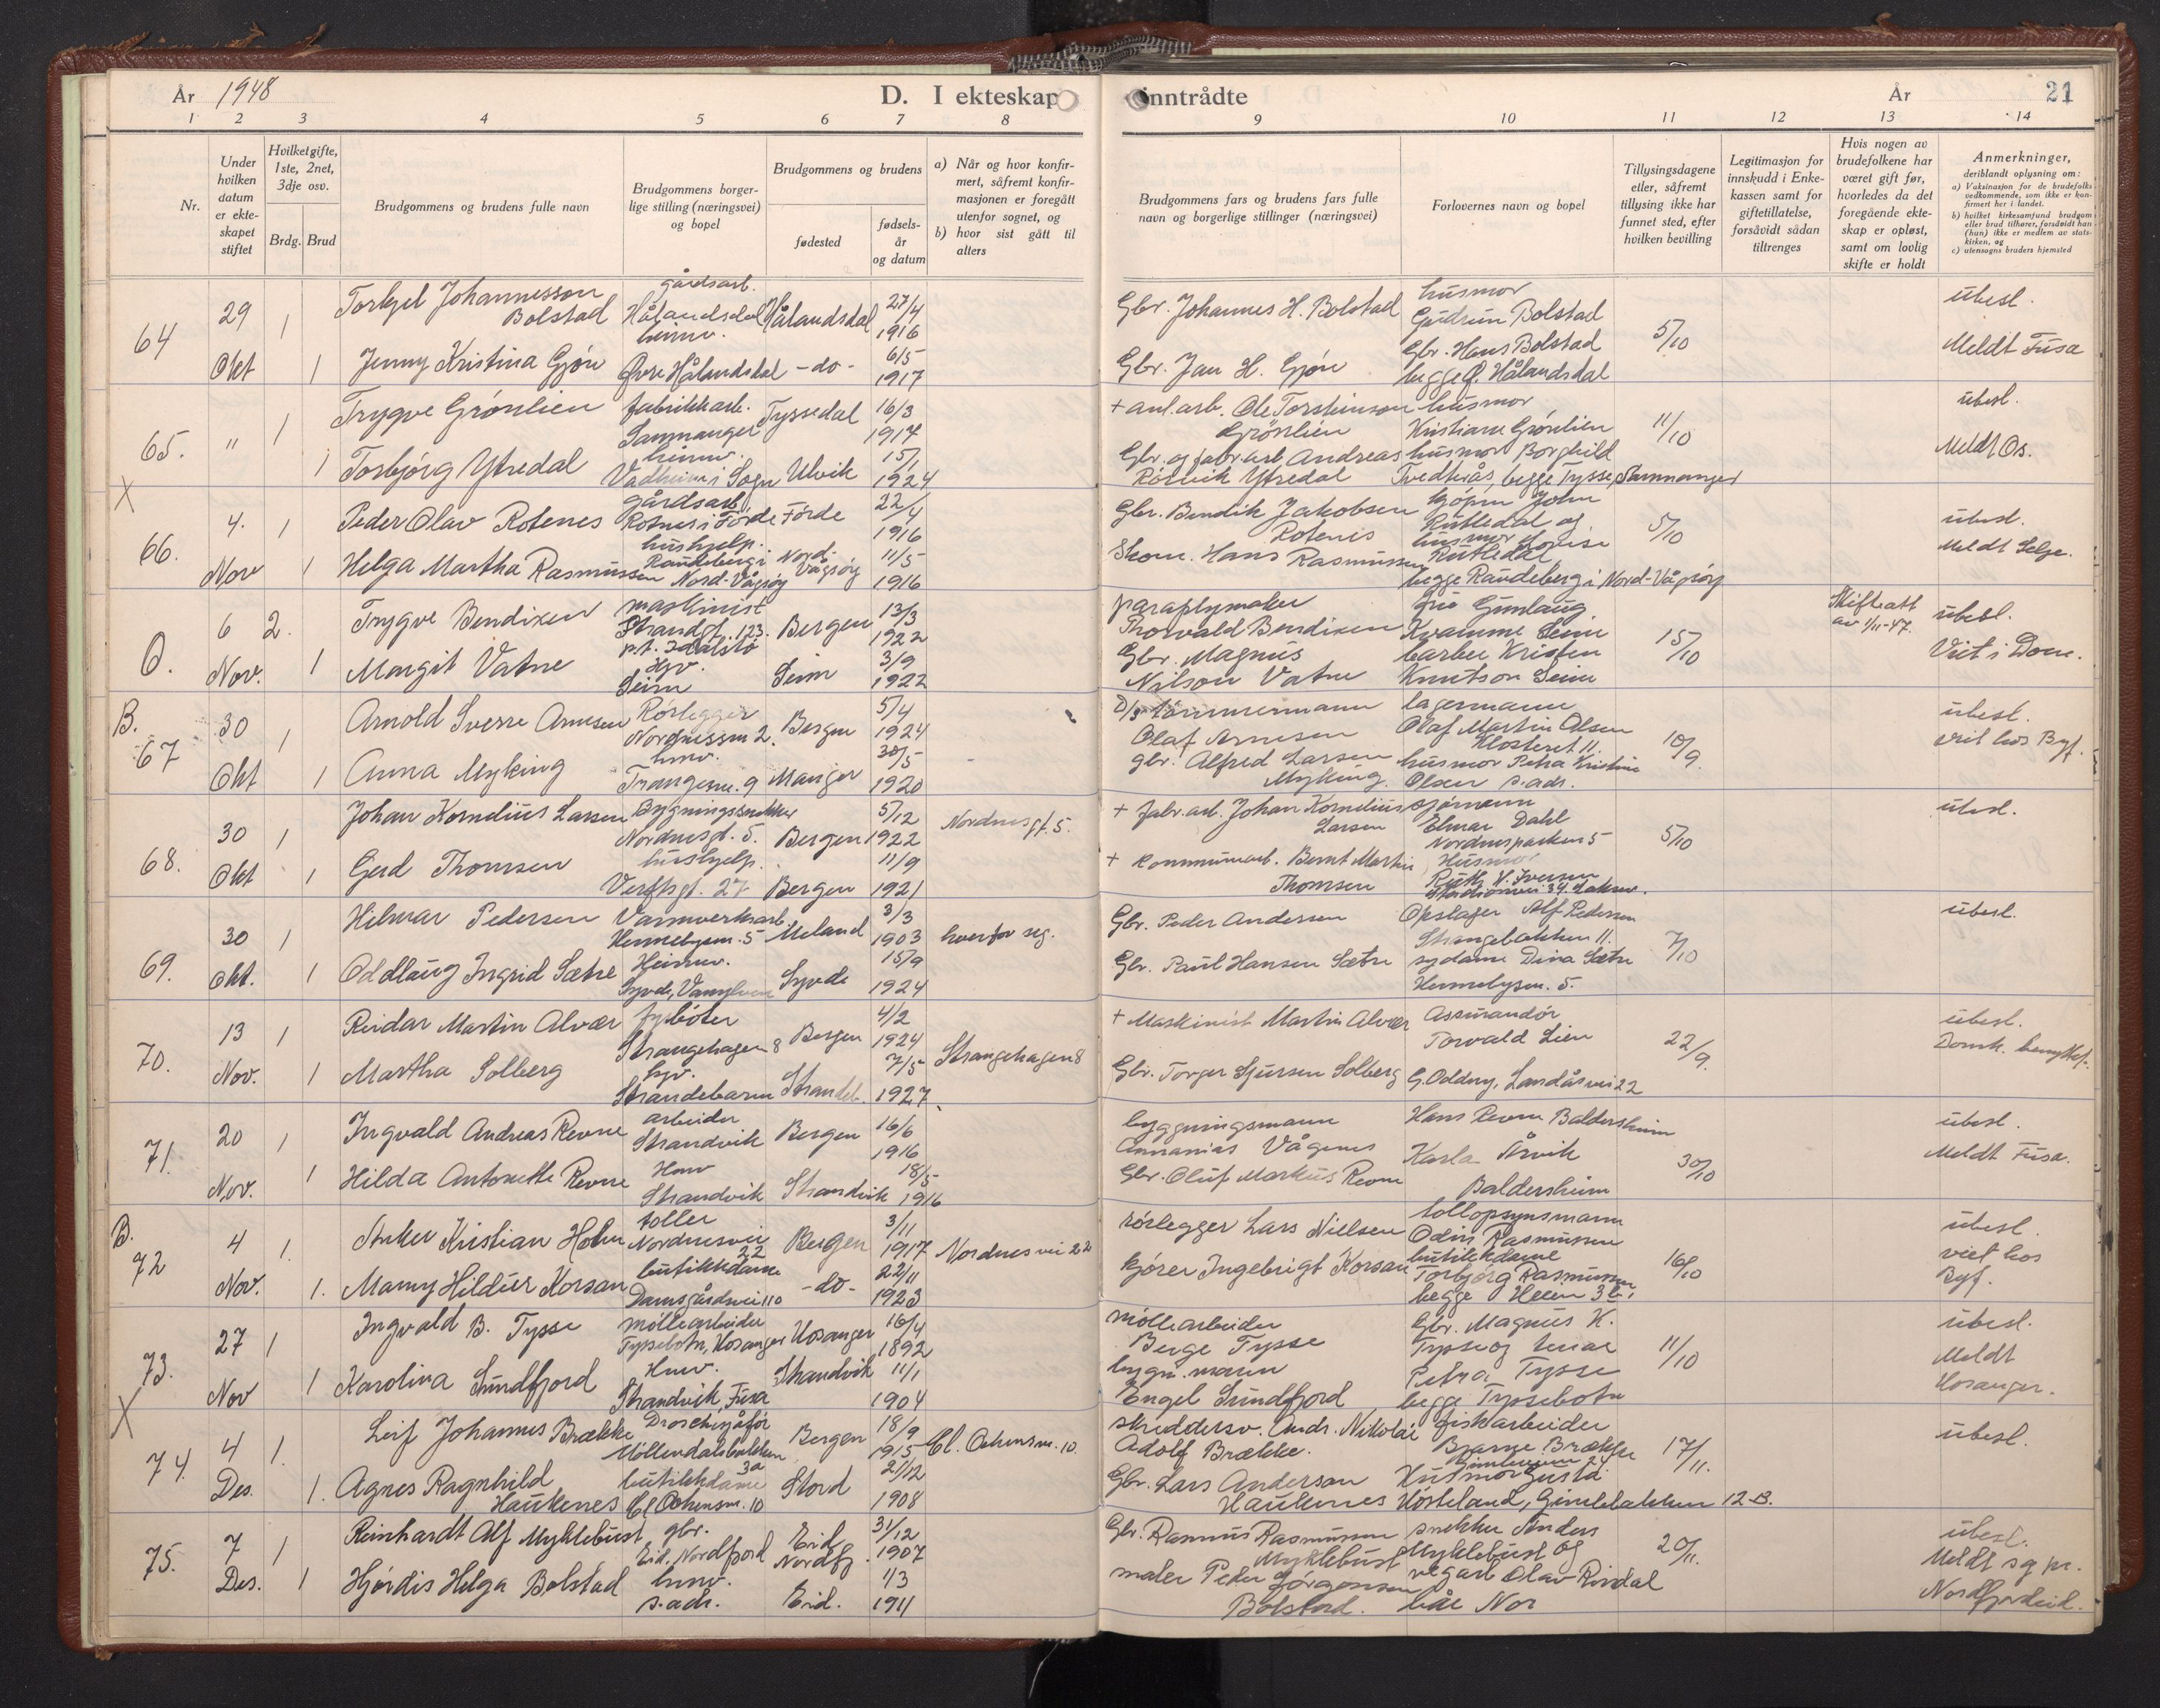 År 1948
D. I ekteskap
inntrådte
År
21
1 2 3 4 5 6 7 8
9 10 11 12 13 14
Nr.
Under hvilken datum er ekteskapet stiftet
Hvilket gifte, 1ste, 2net, 3dje osv.
Brdg. Brud
Brudgommens og brudens fulle navn
Brudgommens borgerlige stilling (næringsvei) og bopel
Brudgommens og brudens
fødested
fødselsår og datum
a) Når og hvor konfirmert, såfremt konfirmasjonen er foregått utenfor sognet, og
b) hvor sist gått til alters
Brudgommens fars og brudens fars fulle navn og borgerlige stillinger (næringsvei)
Forlovernes navn og bopel
Tillysingsdagene eller, såfremt tillysing ikke har funnet sted, efter hvilken bevilling
Legitimasjon for innskudd i Enkekassen samt for giftetillatelse, forsåvidt sådan tiltrenges
Hvis nogen av brudefolkene har været gift før, hvorledes da det foregående ekteskap er opløst, samt om lovlig skifte er holdt
Anmerkninger, deriblandt oplysning om:
a) Vaksinasjon for de brudefolks vedkommende, som ikke er konfirmert her i landet.
b) hvilket kirkesamfund brudgom eller brud tilhører, forsåvidt han (hun) ikke er medlem av statskirken, og
c) utensogns bruders hjemsted
64 29 Okt 1 Torkjel Johannesson Bolstad gårdsarb. Hålandsdal Hålandsdal 27/4 1916
1 Jenny Kristina Gjøn heimv. Øvre Hålandsdal -do- 6/5 1917
Gbr. Johannes H. Bolstad husmor Gudrun Bolstad 5/10 ubesl.
Gbr. Jan H. Gjøn Gbr. Hans Bolstad begge Ø. Hålandsdal Meldt Fusa
65. " 1 Trygve Grønlien fabrikkarb. Samnanger Tyssedal 16/3 1917
1 Torbjørg Ytredal heimv. Vadheim i Sogn Ulvik 15/1 1924
+ anl.arb. Ole Torsteinson Grønlien husmor Kristiane Grønlien 11/10 ubesl.
Gbr. og fabr.arb Andreas Rørvik Ytredal husmor Borghild Tvedterås, begge Tysse, Samnanger Meldt Os.
X
66. 4. Nov 1 Peder Olav Rotenes gårdsarb. Rotnes i Førde Førde 22/4 1916
1 Helga Martha Rasmussen hushjelp. Raudeberg i Nord-Vågsøy Nord-Vågsøy 11/5 1916
Gbr. Bendik Jakobsen Rotenes kjøpm John Rutledal og 5/10 ubesl.
Skom. Hans Rasmussen husmor Lovise Rutledal begge Raudeberg i Nord-Vågsøy Meldt Selje.
O. 6 Nov. 2. Trygve Bendixen maskinist Strandgt. 123. p.t. Idalstø Bergen 13/3 1922
1 Margit Vatne Hjv. Seim Seim 3/9 1922
paraplymaker Thorvald Bendixen fru Gunlaug Kvamme Seim 15/10 Skifteatt av 1/11-47. ubesl.
Gbr. Magnus Nilson Vatne barber Kristen Knutson Seim Viet i Dom.
B.
67 30 Okt 1 Arnold Sverre Arnesen Rørlegger Nordnessm 2. Bergen 5/4 1924
1 Anna Myking hmv. Trangesm. 9 Manger 30/5 1920
D/s tømmermann Olaf Arnesen lagermann Olaf Martin Olsen Klosteret 11. 10/9 ubesl.
gbr. Alfred Larsen Myking husmor Petra Kristine Olsen s.adr. viet hos Byf.
68. 30 Okt 1 Johan Kornelius Larsen Bygningssnekker Nordnesgt. 5. Bergen 5/12 1922 Nordnesgt. 5.
1 Gerd Thomsen hushjelp. Verftsgt. 27 Bergen 11/9 1921
+ fabr.arb. Johan Kornelius Larsen sjømann Elmar Dahl Nordnesparken 5 5/10 ubesl.
+ kommunearb. Bernt Martin Thomsen Husmor Ruth V. Iversen Stadionvei 34
69. 30 Okt. 1 Hilmar Pedersen Varmverksarb. Hennebysm. 5 Meland 3/3 1903 hver for seg.
1 Oddlaug Ingrid Sætre Heimv. Syvde, Vanylven Syvde 15/9 1924
Gbr. Peder Andersen Opslager Alf Pedersen Strangebakken 11. 7/10 ubesl.
Gbr. Paul Hansen Sætre sydame Dina Sætre Hennebysm. 5.
70. 13 Nov. 1 Reidar Martin Alvær fyrbøter Strangehagen 8 Bergen 4/2 1924
1 Martha Solberg hjv. Strandebarm Strandeb. 7/5 1927. Strangehagen 8
+ Maskinist Martin Alvær Assurandør Torvald Lien 22/9. ubesl.
Gbr. Torger Sjursen Solberg G. Oddny, Landåsvei 22 Domk. benyttet.
71. 20 Nov. 1 Ingvald Andreas Revne arbeider Strandvik Bergen 16/6 1916
1 Hilda Antonette Revne Hmv Strandvik Strandvik 18/5 1916
byggningsmann Annanias Vågenes Hans Revne Baldersheim 30/10 ubesl.
Gbr. Oluf Markus Revne Karla Årvik Baldersheim Meldt Fusa.
B.
72 4 Nov. 1. Anker Kristian Holm toller Nordnesvei 22 Bergen 3/11 1917 Nordnesvei 22
1. Mamy Hildur Korsan butikkdame Damsgårdsvei 110 -do- 22/11 1923
rørlegger Lars Nielsen tollopsynsmann Odin Rasmussen 16/10 ubesl.
kjører Ingebrigt Korsan butikkdame Torbjørg Rasmussen begge Heien 3 viet hos Byf.
73. 27 Nov 1 Ingvald B. Tysse møllearbeider Tyssebotn, Hosanger Hosanger 16/4 1892
1 Karolina Sundfjord Hmv. Strandvik, Fusa Strandvik 11/1 1904
møllearbeider Berge Tysse Gbr. Magnus K. Tysse og 11/10 ubesl.
bygn.mann Engel Sundfjord Petra Tysse begge Tyssebotn Meldt Hosanger.
X
74. 4 Des. 1. Leif Johannes Brække Drosjesjåfør Møllendalsbakken 3a Bergen 18/9 1915 Cl. Ockensm. 10.
1. Agnes Ragnhild Haukenes butikkdame Cl Ockensm. 10 Stord 21/12 1908
skreddersv. Andr. Nikolai Adolf Brække. fiskarbeider Bjarne Brække 17/11. ubesl.
Gbr. Lars Anderson Haukenes Husmor Gusta Høsteland, Gimlebakken 12-B.
75. 7 Des. 1 Reinhardt Alf Myklebust gbr. Eid, Nordfjord Eid Nordfj 31/12 1907
1 Hjørdis Helga Bolstad hmv. s.adr. Eid. 1/3 1911
Gbr. Rasmus Rasmussen Myklebust snekker Anders Myklebust og 20/11. ubesl.
maler Peder Jørgensen Bolstad. vegarb Olav Rivdal båe Nor Meldt sg pr. Nordfjordeid.